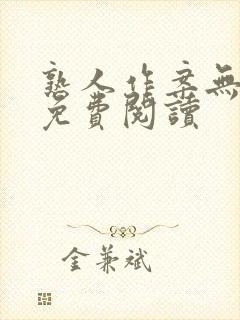 熟人作案無
免費閱讀
金兼斌